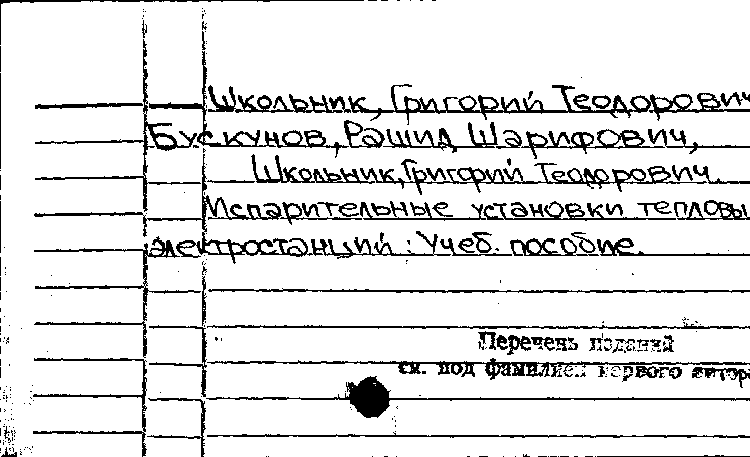 Школьник, Григорий Теодорович
Бускунов, Рашид Шарифович,
Школьник, Григорий Теодорович.
Испарительные установки тепловы
электростанций : Учеб. пособие.
Перечень изданий
см. под фамилией первого автора